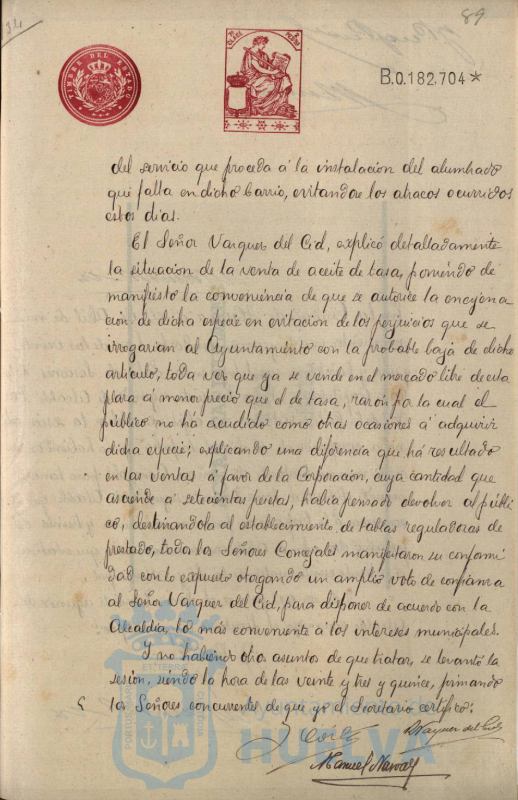 34
89
TIMBRE DEL ESTADO
B.0.182.704*
del servicio que proceda á la instalacion del alumbrado
que falta en dicho barrio, evitandose los atracos ocurridos
estos dias.
El Señor Vazquez del Cid, explicó detalladamente
la situacion de la venta de aceite de tasa, poniendo de
manifiesto la conveniencia de que se autorice la enagena
ción de dicha especie en evitacion de los perjuicios que se
irrogarian al Ayuntamiento con la probable baja de dicho
artículo, toda vez que ya se vende en el mercado libre de esta
plaza a menor precio que el de tasa, razón por la cual el
público no há acudido como otras ocasiones á adquirir
dicha especie; explicando una diferencia que há resultado
en las ventas á favor de la Corporación, cuya cantidad que
asciende á setecientas pesetas, habia pensado devolver al públi
co, destinándola al establecimiento de tablas reguladoras de
pescado, todos los Señores Concejales manifestaron su conformi
dad con lo expuesto otorgando un amplio voto de confianza
al Señor Vázquez del Cid, para disponer de acuerdo con la
Alcaldía, lo más conveniente á los intereses municipales.
Y no habiendo otros asuntos de que tratar, se levantó la
sesión, siendo la hora de las veinte y tres y quince, firmando
los Señores concurrentes de que yo el Secretario certifico.
Vazquez del Cid
Manuel Narvaez
HUELVA